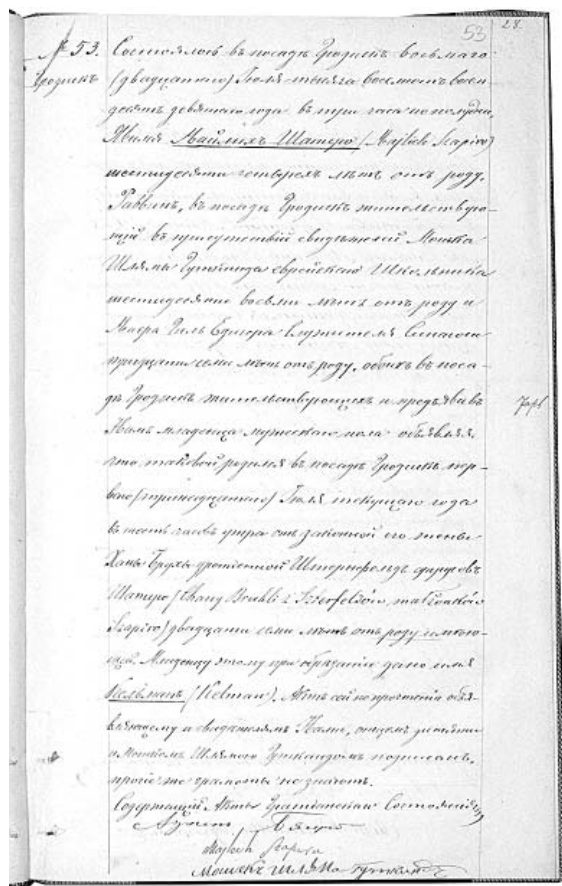 53
28.
№ 53. Состоялось въ посадѣ Гродискѣ восьмаго
Гродискъ (двадцатаго) Іюля тысяча восемьсотъ восемь
десятъ девятаго года въ три часа по полудни.
Явился Майлихъ Шапиро (Majlich Szapiro)
шестидесяти четырехъ лѣтъ отъ роду,
Раввинъ, въ посадѣ Гродискѣ жительствую-
щій въ присутствіи свидѣтелей Мошка
Шлямы еврейскаго Школьника
шестидесяти восьми лѣтъ отъ роду и
служителя Синагоги
тридцати семи лѣтъ отъ роду, обоихъ въ поса-
дѣ Гродискѣ жительствующихъ и предъявивъ
Намъ младенца мужескаго пола объявляя,
что таковой родился въ посадѣ Гродискѣ пер-
ваго (тринадцатаго) Іюля текущаго года
въ шесть часовъ утра отъ законной его жены
Ханы Брухи урожденной
Шапиро (Chany Bruchli z
Szapiro) двадцати семи лѣтъ отъ роду имѣю-
щей. Младенцу этому при обрѣзаніи дано имя
Кельманъ (Kelman). Актъ сей по прочтеніи объя-
вляющему и свидѣтелямъ Нами, отцемъ дитяти
и Мошкомъ Шлямою подписанъ,
прочіе же грамоты не знаютъ.
Содержащій Акты Гражданскаго Состоянія
Majlich Szapiro
Мошекъ Шляма